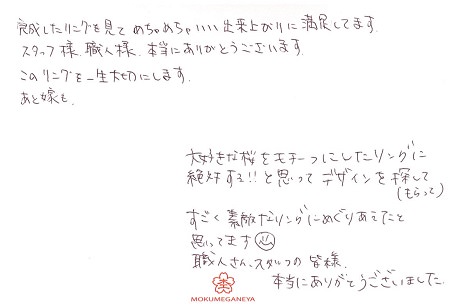 完成したリングを見て めちゃめちゃいい出来上がりに満足してます.
スタッフ様.職人様.本当にありがとうございます.
このリングを一生大切にします.
あと嫁も.
大好きな桜をモチーフにしたリングに
絶対する!!と思って デザインを探して
(もらって)
すごく素敵なリングにめぐりあえたと
思ってます
職人さん、スタッフの皆様.
本当にありがとうございました.
MOKUMEGANEYA